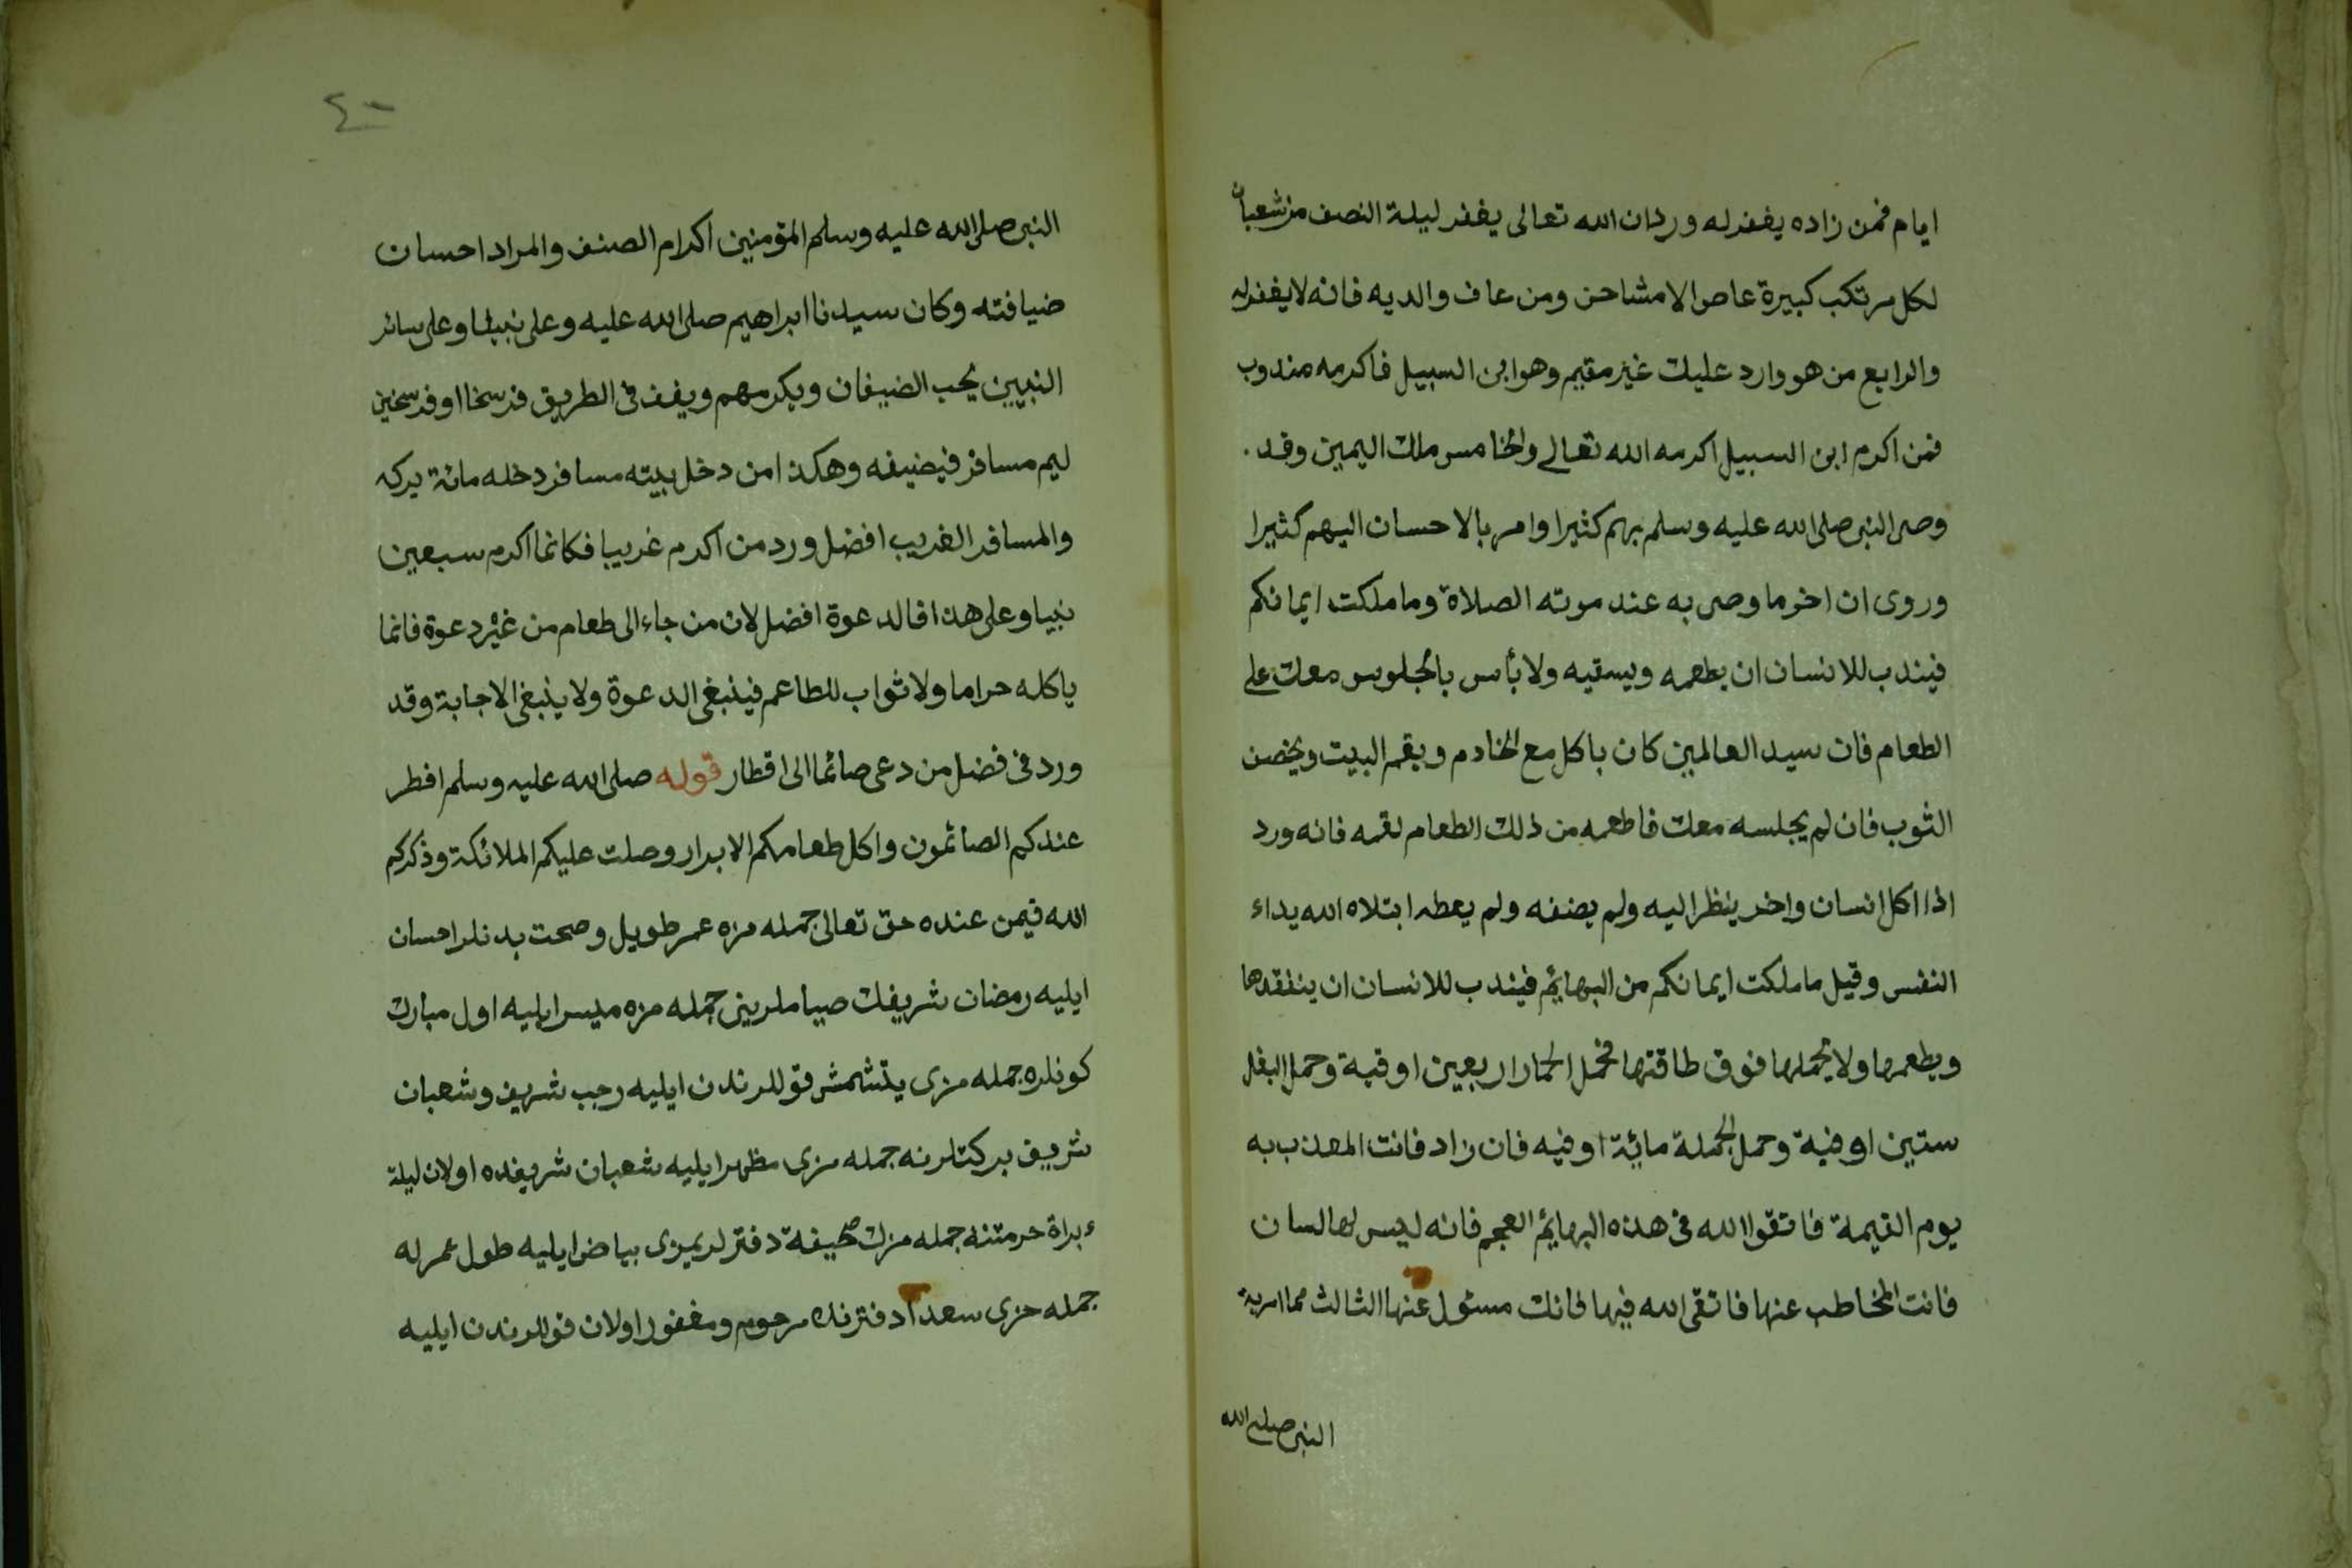 ايام فمن زاده يغفر له وردان الله تعالى يغفر ليلة النصف من شعبان
لكل مرتكب كبيرة عاص الا مشاحن ومن عاف والديه فانه لا يغفر له
والرابع من هو وارد عليك غير مقيم وهو ابن السبيل فاكرمه مندوب
فمن اكرم ابن السبيل اكرمه الله تعالى والخامس ملك اليمين وقد
وصى النبى صلى الله عليه وسلم بهم كثيرا وامر بالاحسان اليهم كثيرا
وروى ان اخر ما وصى به عند موته الصلاة وما ملكت ايمانكم
فيندب للانسان ان يطعمه ويسقيه ولا بأس بالجلوس معك على
الطعام فان سيد العالمين كان ياكل مع الخادم ويقم البيت ويخصن
الثوب فان لم يجلسه معك فاطعمه من ذلك الطعام لقمه فانه ورد
اذا اكل انسان واخر ينظر اليه ولم يضفه ولم يعطه ابتلاه الله بداء
النفس وقيل ما ملكت ايمانكم من البهايم فيندب للانسان ان يتفقدها
ويطعمها ولا يحملها فوق طاقتها فحمل الحمار اربعين اوقية وحمل البغل
ستين اوقية وحمل الجملة مائة اوقيه فان زاد فانت المعذب به
يوم القيمة فاتقوا الله فى هذه البهايم العجم فانه ليس لها لسان
فانت المخاطب عنها فاتقى الله فيها فانك مسئول عنها الثالث مما امر به
النبى صلى الله
٤٠
النبى صلى الله عليه وسلم المؤمنين اكرام الضيف والمراد احسان
ضيافته وكان سيدنا ابراهيم صلى الله عليه وعلى نبينا وعلى سائر
النبيين يحب الضيفان ويكرمهم ويقف فى الطريق فرسخا او فرسخين
ليم مسافر فيضيفه وهكذا من دخل بيته مسافر دخله مائة بركه
والمسافر الغريب افضل ورد من اكرم غريبا فكانما اكرم سبعين
نبيا وعلى هذا فالدعوة افضل لان من جاء الى طعام من غير دعوة فانما
ياكله حراما ولا ثواب للطاعم فينبغى الدعوة ولا ينبغى الاجابة وقد
ورد فى فضل من دعى صائما الى افطار قوله صلى الله عليه وسلم افطر
عندكم الصائمون واكل طعامكم الابرار وصلت عليكم الملائكة وذكركم
الله فيمن عنده حق تعالى جمله مزه عمر طويل وصحت بدنلر احسان
ايليه رمضان شريفك صياملرينى جمله مزه ميسر ايليه اول مبارك
كونلره جمله مزى يتشمش قوللرندن ايليه رجب شريف وشعبان
شريف بركتلرنه جمله مزى مظهر ايليه شعبان شريفده اولان ليلة
براة حرمتنه جمله مزك صحيفة دفترلريمزى بياض ايليه طول عمرله
جمله مزى سعدآ دفترنده مرحوم ومغفور اولان قوللرندن ايليه